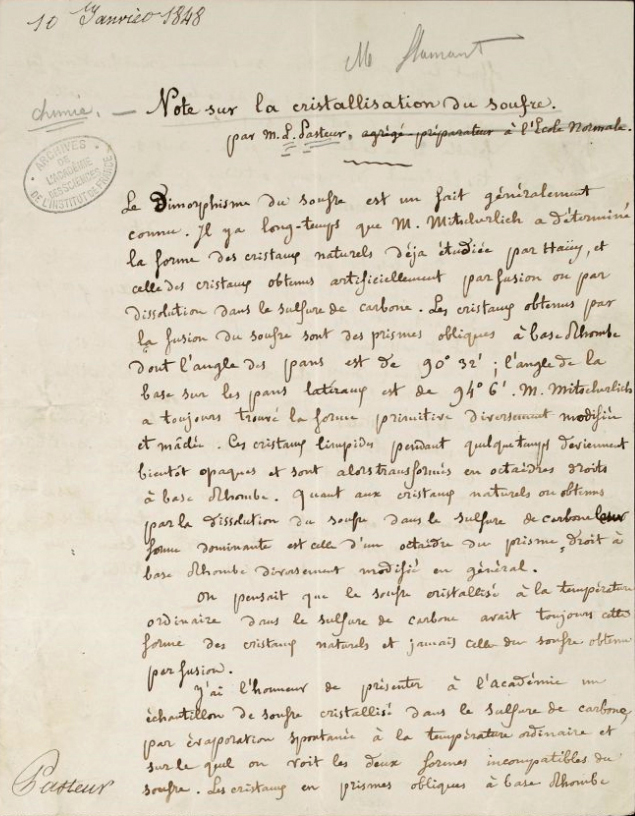 10 Janvier 1848
M Flamant
chimie. — Note sur la cristallisation du soufre.
par M. L. Pasteur, agrégé préparateur à l'École Normale.
ARCHIVES
DE
L'ACADÉMIE
DES SCIENCES
DE L'INSTITUT DE FRANCE
Le Dimorphisme du soufre est un fait généralement
connu. Il y a long-temps que M. Mitscherlich a déterminé
la forme des cristaux naturels déja étudiée par Haüy, et
celle des cristaux obtenus artificiellement par fusion ou par
dissolution dans le sulfure de carbone. Les cristaux obtenus par
la fusion du soufre sont des prismes obliques à base Rhombe
dont l'angle des pans est de 90° 32' ; l'angle de la
base sur les pans latéraux est de 94° 6'. M. Mitscherlich
a toujours trouvé la forme primitive diversement modifiée
et mâclée. Ces cristaux limpides pendant quelque temps deviennent
bientôt opaques et sont alors transformés en octaèdres droits
à base Rhombe. Quant aux cristaux naturels ou obtenus
par la dissolution du soufre dans le sulfure de carbone leur
forme dominante est celle d'un octaèdre du prisme droit à
base Rhombe diversement modifié en général.
On pensait que le soufre cristallisé à la température
ordinaire dans le sulfure de carbone avait toujours cette
forme des cristaux naturels et jamais celle du soufre obtenu
par fusion.
J'ai l'honneur de présenter à l'académie un
échantillon de soufre cristallisé dans le sulfure de carbone,
par évaporation spontanée à la température ordinaire et
sur le quel on voit les deux formes incompatibles du
soufre. Les cristaux en prismes obliques à base Rhombe
Pasteur